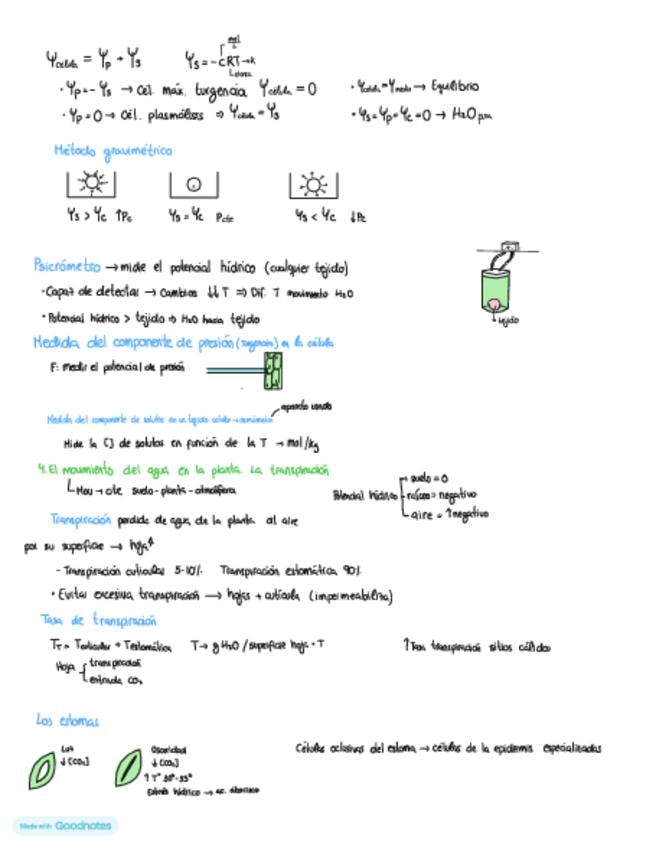 Ψcélula = Ψp + Ψs Ψs = -cRT → K
mol
· Ψp = -Ψs → Cél. máx. turgencia Ψcélula = 0 · Ψcélula = Ψmedio → Equilibrio
· Ψp = 0 → Cél. plasmólisis ⇒ Ψcélula = Ψs · Ψs = Ψp = Ψc = 0 → H₂O pura
Método gravimétrico
Ψs > Ψc ↑Pc Ψs = Ψc Pcte Ψs < Ψc ↓Pc
Psicrómetro → mide el potencial hídrico (cualquier tejido)
· Capaz de detectar → Cambios ↓↓ T ⇒ Dif. T movimiento H₂O
· Potencial hídrico > tejido ⇒ H₂O hacia tejido
tejido
Medida del componente de presión (turgencia) en la célula
F: medir el potencial de presión
aparato usado
Medida del componente de solutos en un tejido celular → osmómetro
Mide la [] de solutos en función de la T → mol/kg
4. El movimiento del agua en la planta. La transpiración
Mov → cte suelo - planta - atmósfera
Potencial hídrico suelo = 0
raíces = negativo
aire = ↑negativo
Transpiración perdida de agua de la planta al aire
por su superficie → hoja
- Transpiración cuticular 5-10% Transpiración estomática 90%
· Evitar excesiva transpiración → hojas + cutícula (impermeabiliza)
Tasa de transpiración
TT = Tcuticular + Testomática T → g H₂O / superficie hoja · T ↑Tasa transpiración sitios cálidos
Hoja transpiración
entrada CO₂
Los estomas
Luz
↓[CO₂]
Oscuridad
↓[CO₂]
↑T° 30°-35°
Estrés hídrico → ac. abscísico
Células oclusivas del estoma → células de la epidermis especializadas
Made with Goodnotes